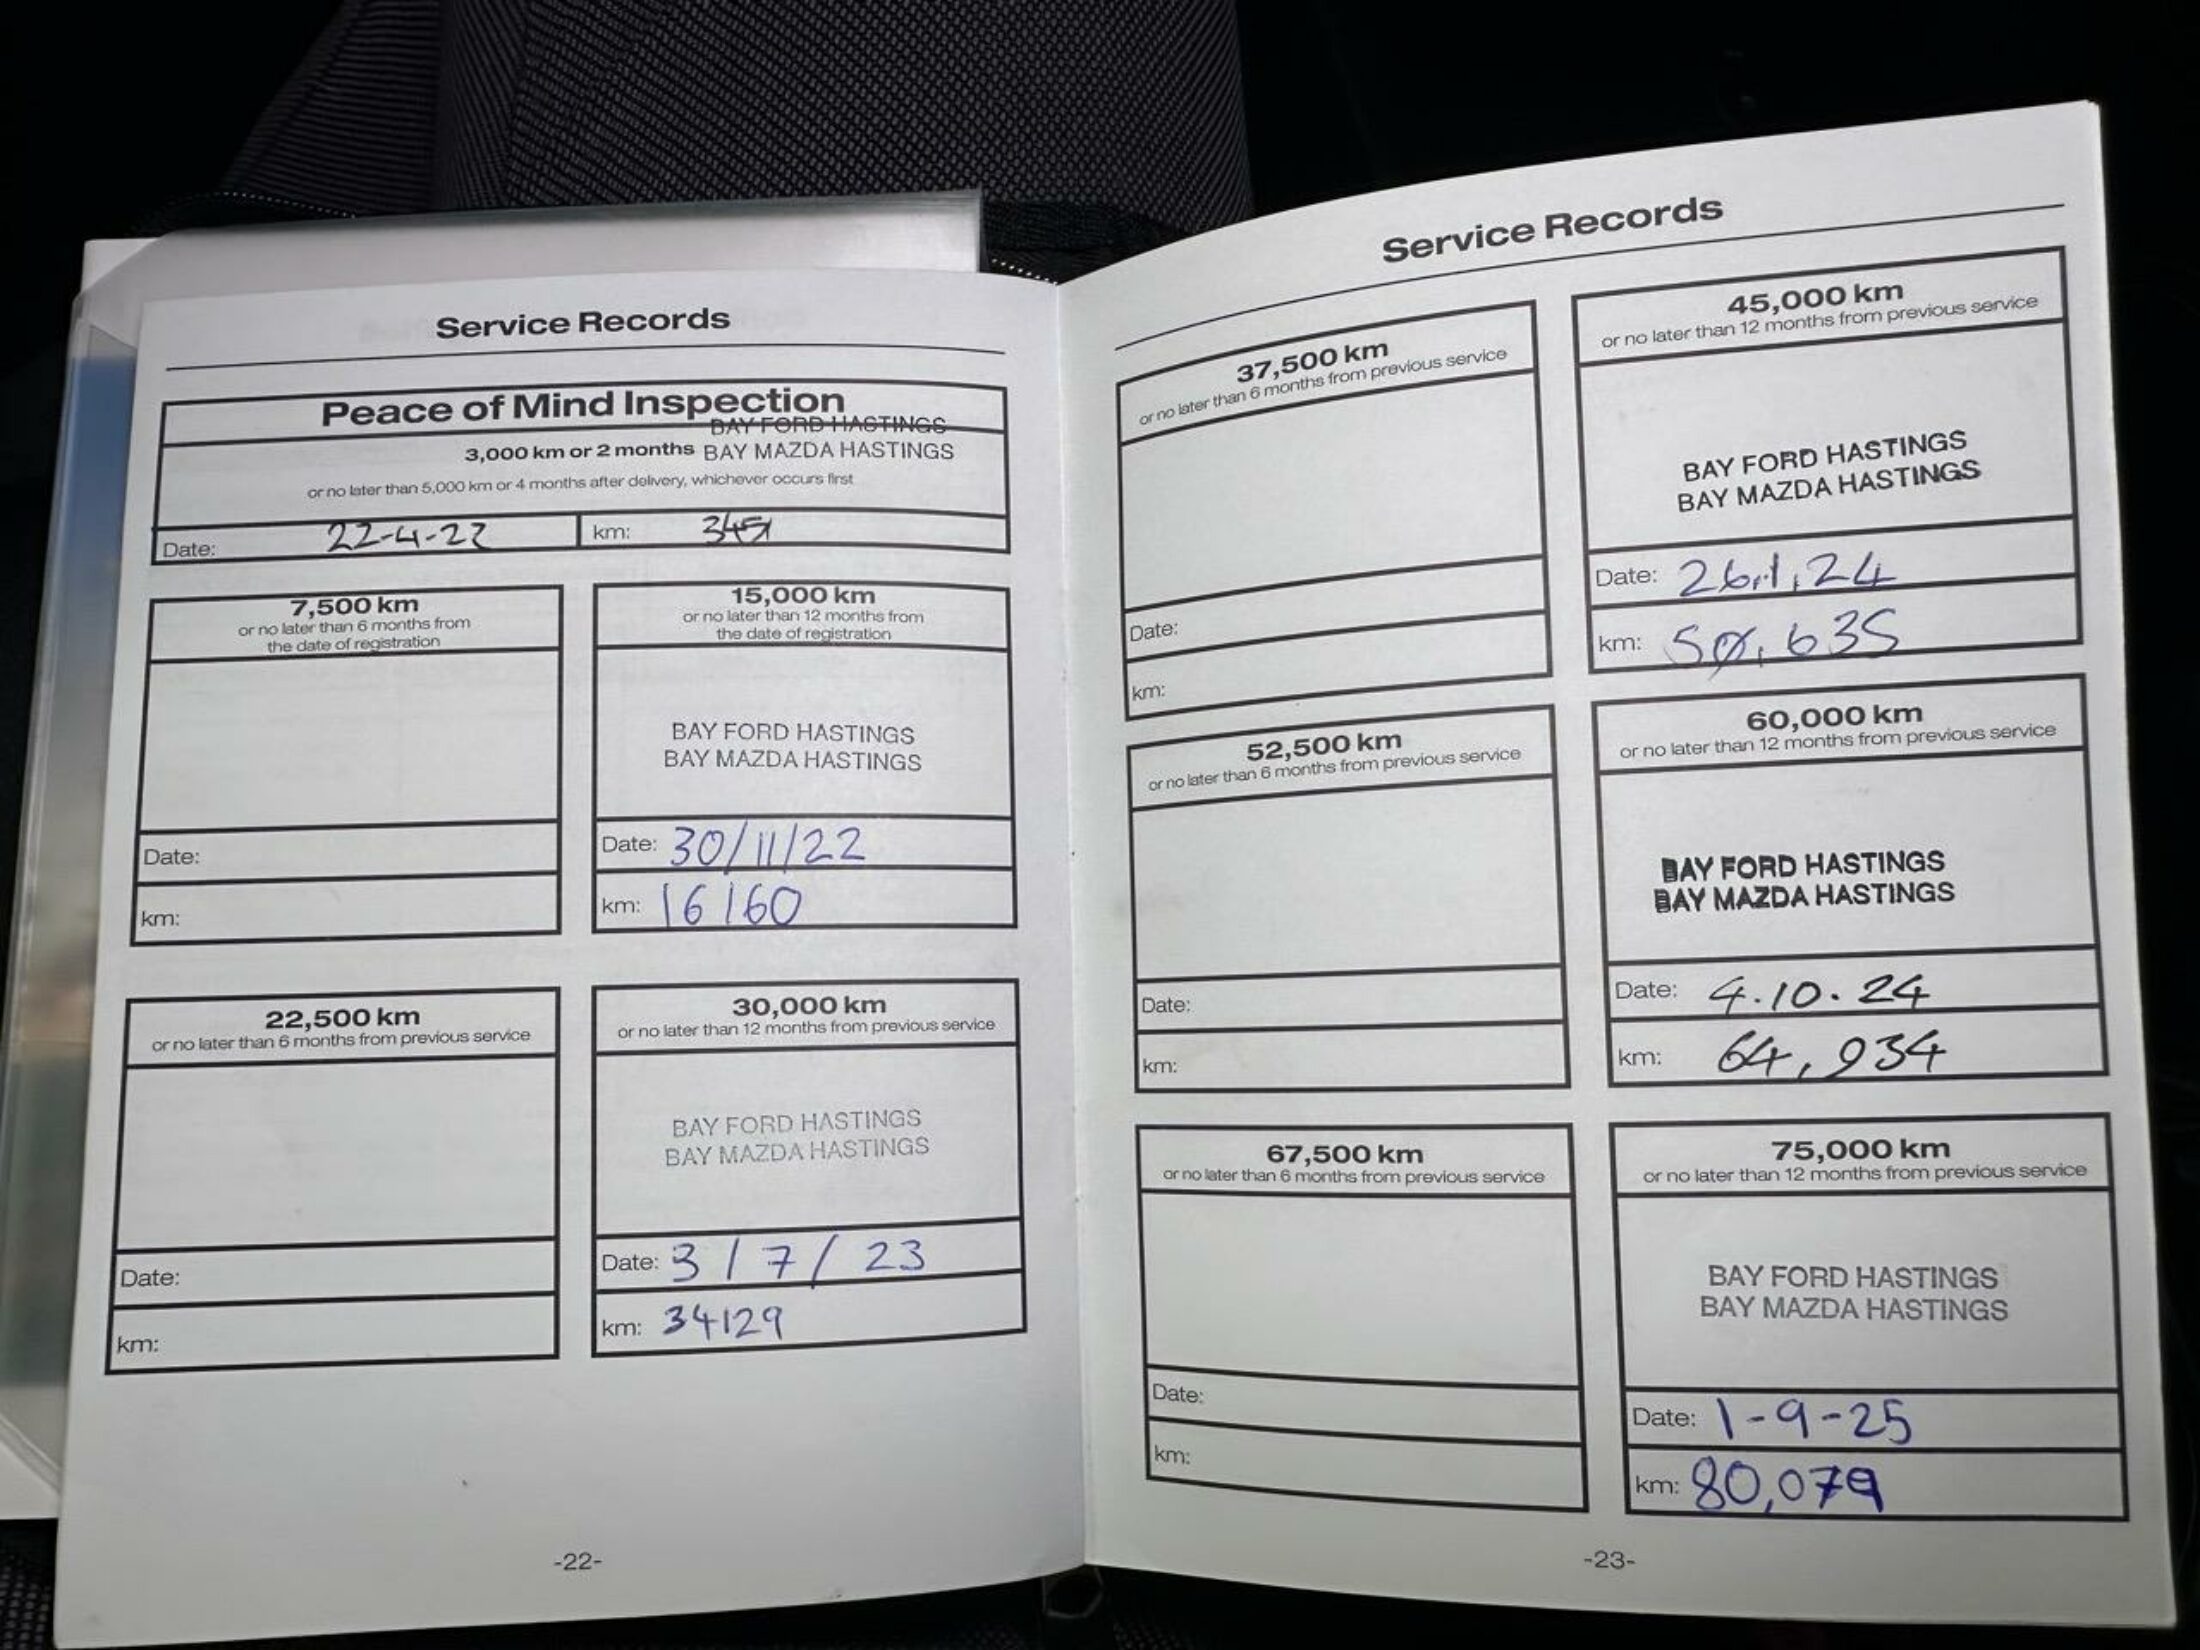 Service Records
Peace of Mind Inspection
BAY FORD HASTINGS
3,000 km or 2 months BAY MAZDA HASTINGS
or no later than 5,000 km or 4 months after delivery, whichever occurs first
Date: 22-4-22 km: 3451
7,500 km
or no later than 6 months from
the date of registration
Date:
km:
15,000 km
or no later than 12 months from
the date of registration
BAY FORD HASTINGS
BAY MAZDA HASTINGS
Date: 30/11/22
km: 16160
22,500 km
or no later than 6 months from previous service
Date:
km:
30,000 km
or no later than 12 months from previous service
BAY FORD HASTINGS
BAY MAZDA HASTINGS
Date: 3/7/23
km: 34129
-22-
Service Records
37,500 km
or no later than 6 months from previous service
Date:
km:
45,000 km
or no later than 12 months from previous service
BAY FORD HASTINGS
BAY MAZDA HASTINGS
Date: 26.1.24
km: 50,635
52,500 km
or no later than 6 months from previous service
Date:
km:
60,000 km
or no later than 12 months from previous service
BAY FORD HASTINGS
BAY MAZDA HASTINGS
Date: 4.10.24
km: 64,934
67,500 km
or no later than 6 months from previous service
Date:
km:
75,000 km
or no later than 12 months from previous service
BAY FORD HASTINGS
BAY MAZDA HASTINGS
Date: 1-9-25
km: 80,079
-23-